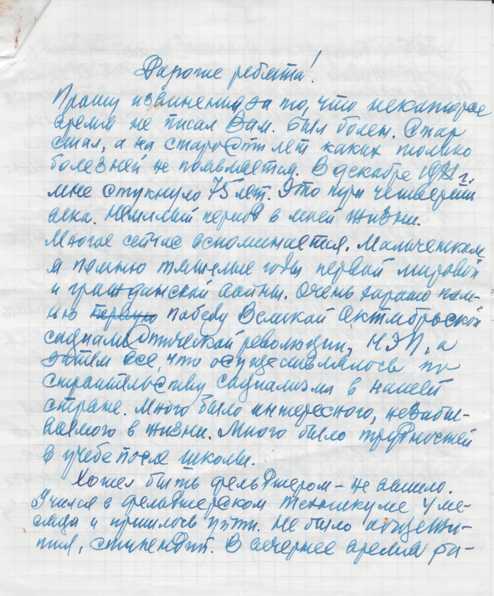 Дарогие ребята!
Прошу извинения за то, что некоторое
время не писал Вам. Был болен. Стар
стал, а на старости лет каких только
болезней не появляется. В декабре 1981 г.
мне стукнуло 75 лет. Это три четверти
века. Немилый период в моей жизни.
Многое сейчас вспоминается. Мальченкам
я помню тяжелые годы первой мировой
и гражданской войны. Очень хорошо пом-
ню первую победу Великой Октябрьской
социалистической революции, НЭП, а
затем все, что осуществлялось по
строительству социализма в нашей
стране. Много было интересного, незабы-
ваемого в жизни. Много было трудностей
в учебе после школы.
Хотел быть фельдшером - не вышло.
Учился в фельдшерском техникуме 4 ме-
сяца и пришлось уйти. Не было общежи-
тия, стипендий. В вечернее время ра-